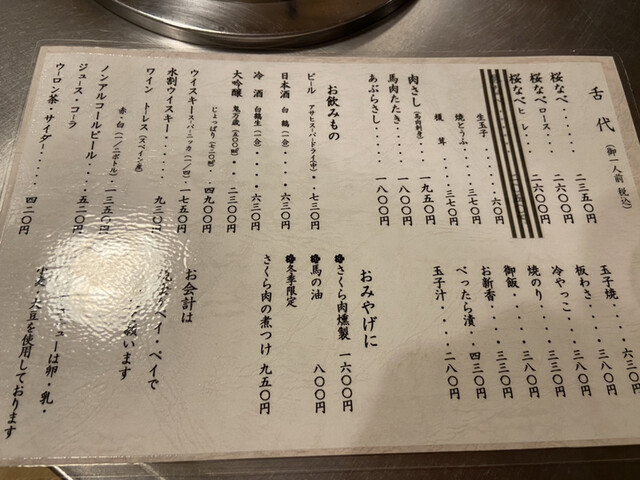 舌代 (御一人前 税込)
桜なべ・・・・・二三五〇円
桜なべロース・・・・二六〇〇円
桜なべヒレ・・・・二六〇〇円
生玉子・・・・・・六〇円
焼どうふ・・・・三七〇円
榎茸・・・・三七〇円
肉さし(馬肉刺身)・・・一九五〇円
馬肉たたき・・・・一八〇〇円
あぶらさし・・・・一八〇〇円
お飲みもの
ビール アサヒスーパードライ(中)・七三〇円
日本酒 白鶴(一合)・・・・六三〇円
冷酒 白鶴生(一合)・・・・六三〇円
大吟醸
じょっぱり(七二〇㎖)・四九〇〇円
ウイスキー
水割ウイスキー・・・・九三〇円
ワイン トーレス(スペイン産)
赤・白(一/二ボトル)・一三五〇円
ノンアルコールビール・・・・五二〇円
ジュース・コーラ
ウーロン茶・サイダー・・・・四二〇円
玉子焼・・・・・六三〇円
板わさ・・・・・三八〇円
冷やっこ・・・・三八〇円
焼のり・・・・・三八〇円
御飯・・・・・・三三〇円
お新香・・・・・三八〇円
べったら漬・・・四三〇円
玉子汁・・・・・二八〇円
おみやげに
さくら肉燻製 一六〇〇円
馬の油 八〇〇円
冬季限定
さくら肉の煮つけ 九五〇円
お会計は
ペイ・ペイで
います
ューは卵・乳・
大豆を使用しております